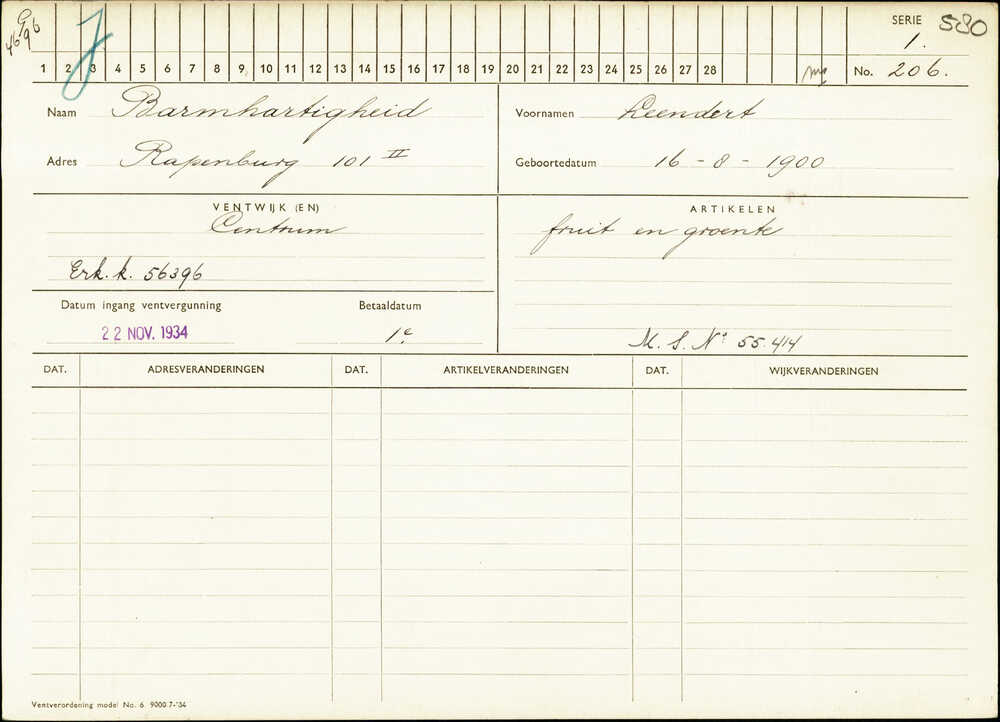 G 46/96 J SERIE 580
1.
1 2 3 4 5 6 7 8 9 10 11 12 13 14 15 16 17 18 19 20 21 22 23 24 25 26 27 28 No. 206.
Naam Barmhartigheid Voornamen Leendert
Adres Rapenburg 101 II Geboortedatum 16-8-1900
VENTWIJK (EN) ARTIKELEN
Centrum fruit en groente
Erk. k. 56396
Datum ingang ventvergunning Betaaldatum
22 NOV. 1934 1e
M. S. No 55.414
DAT. ADRESVERANDERINGEN DAT. ARTIKELVERANDERINGEN DAT. WIJKVERANDERINGEN
Ventverordening model No. 6 9000.7-'34